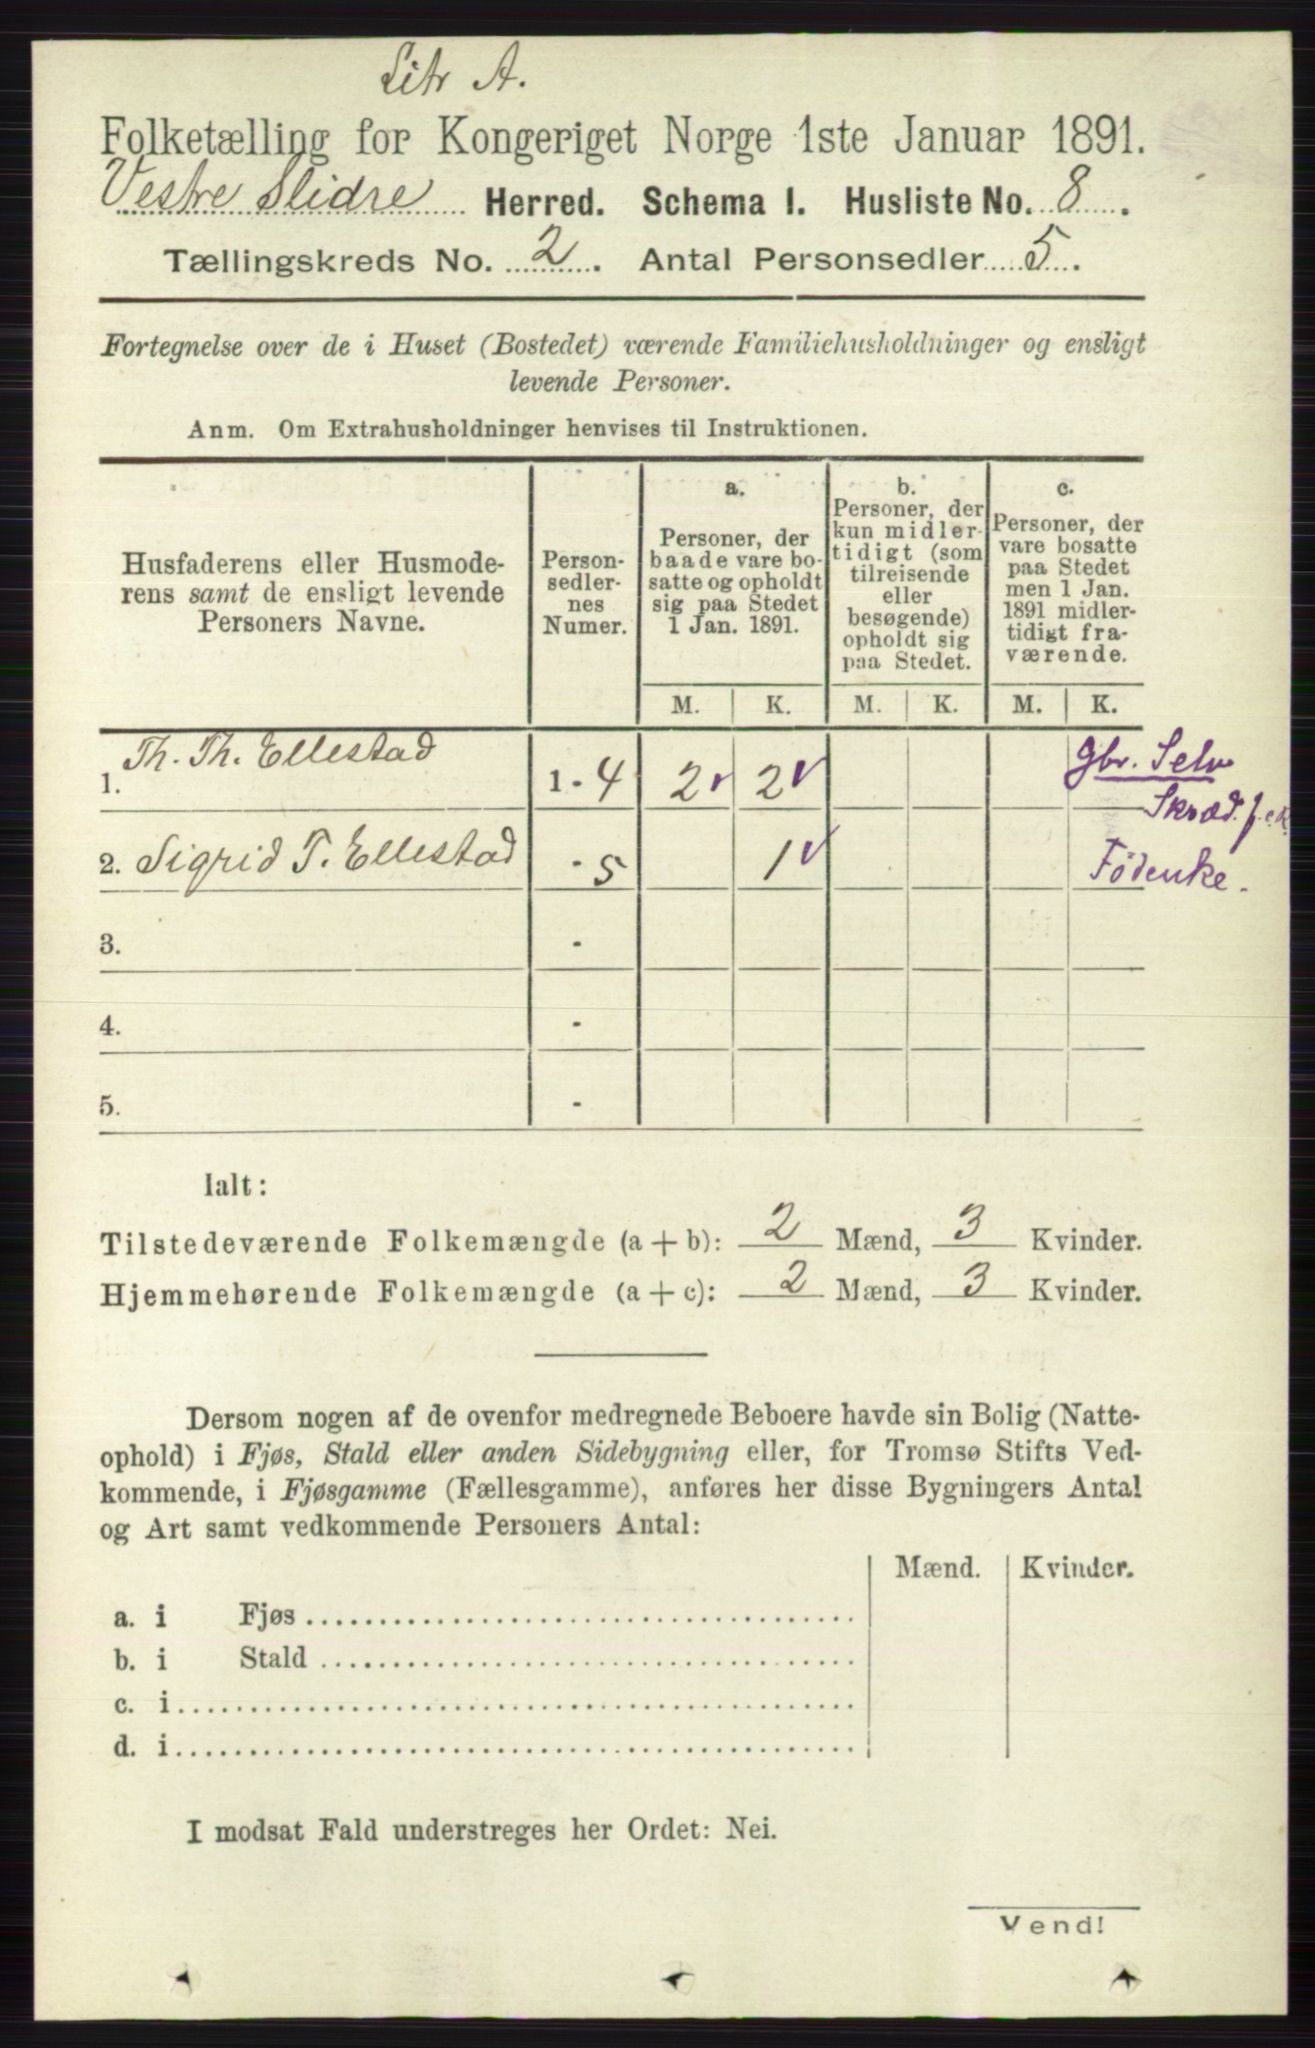 Litr A.
Folketælling for Kongeriget Norge 1ste Januar 1891.
Vestre Slidre Herred. Schema I. Husliste No. 8.
Tællingskreds No. 2. Antal Personsedler 5.
Fortegnelse over de i Huset (Bostedet) værende Familiehusholdninger og ensligt
levende Personer.
Anm. Om Extrahusholdninger henvises til Instruktionen.
Husfaderens eller Husmode-
rens samt de ensligt levende
Personers Navne.
Person-
sedler-
nes
Numer.
a.
Personer, der
baade vare bo-
satte og opholdt
sig paa Stedet
1 Jan. 1891.
b.
Personer, der
kun midler-
tidigt (som
tilreisende
eller
besøgende)
opholdt sig
paa Stedet.
c.
Personer, der
vare bosatte
paa Stedet
men 1 Jan.
1891 midler-
tidigt fra-
værende.
M. K. M. K. M. K.
1. Th. Th. Ellestad 1 - 4 2 2 Gbr. Selv
Skræd. f.e.R.
2. Sigrid T. Ellestad - 5 1 Födenke.
3. -
4. -
5. -
Ialt:
Tilstedeværende Folkemængde (a + b): 2 Mænd, 3 Kvinder.
Hjemmehørende Folkemængde (a + c): 2 Mænd, 3 Kvinder.
Dersom nogen af de ovenfor medregnede Beboere havde sin Bolig (Natte-
ophold) i Fjøs, Stald eller anden Sidebygning eller, for Tromsø Stifts Ved-
kommende, i Fjøsgamme (Fællesgamme), anføres her disse Bygningers Antal
og Art samt vedkommende Personers Antal:
Mænd. Kvinder.
a. i Fjøs
b. i Stald
c. i
d. i
I modsat Fald understreges her Ordet: Nei.
Vend!